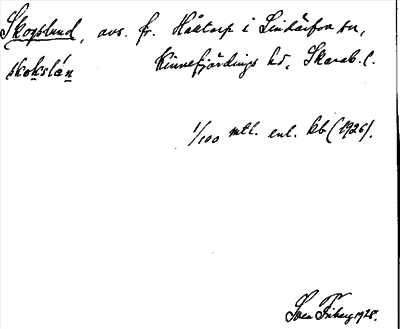 Skogslund, avs. fr. Håltorp i Lindärfva sn,
skokslån Kinnefjärdings hd, Skarab. l.
1/100 mtl. enl. kb (1926).
Sven Friberg 1928.